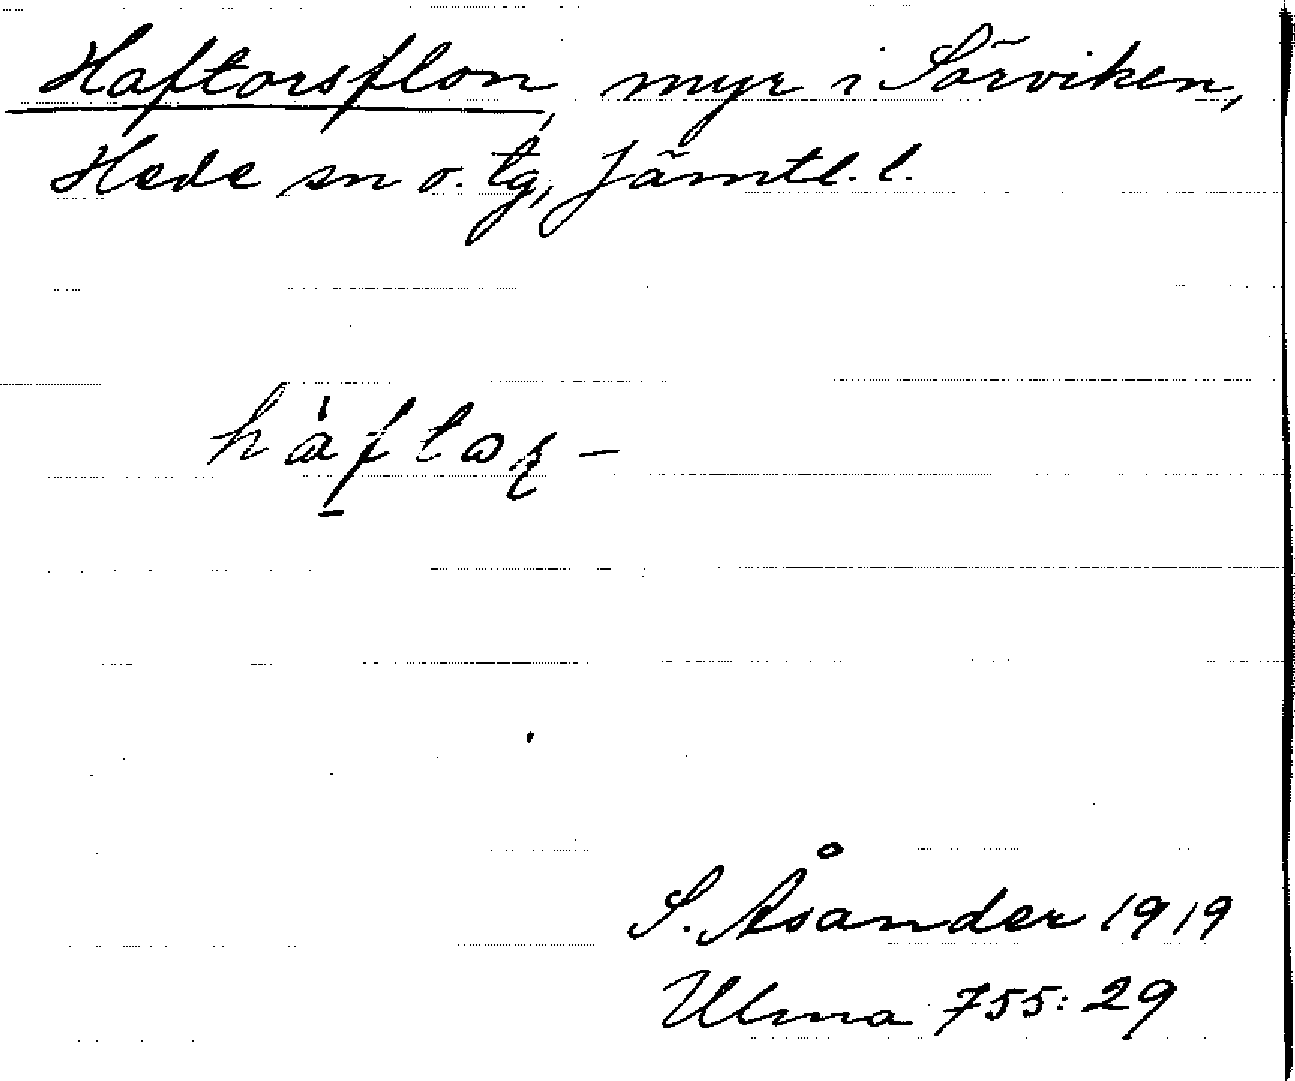 Haftorsflon, myr i Särviken,
Hede sn o. tg, Jämtl. l.
S. Åsander 1919
Ulma 755:29